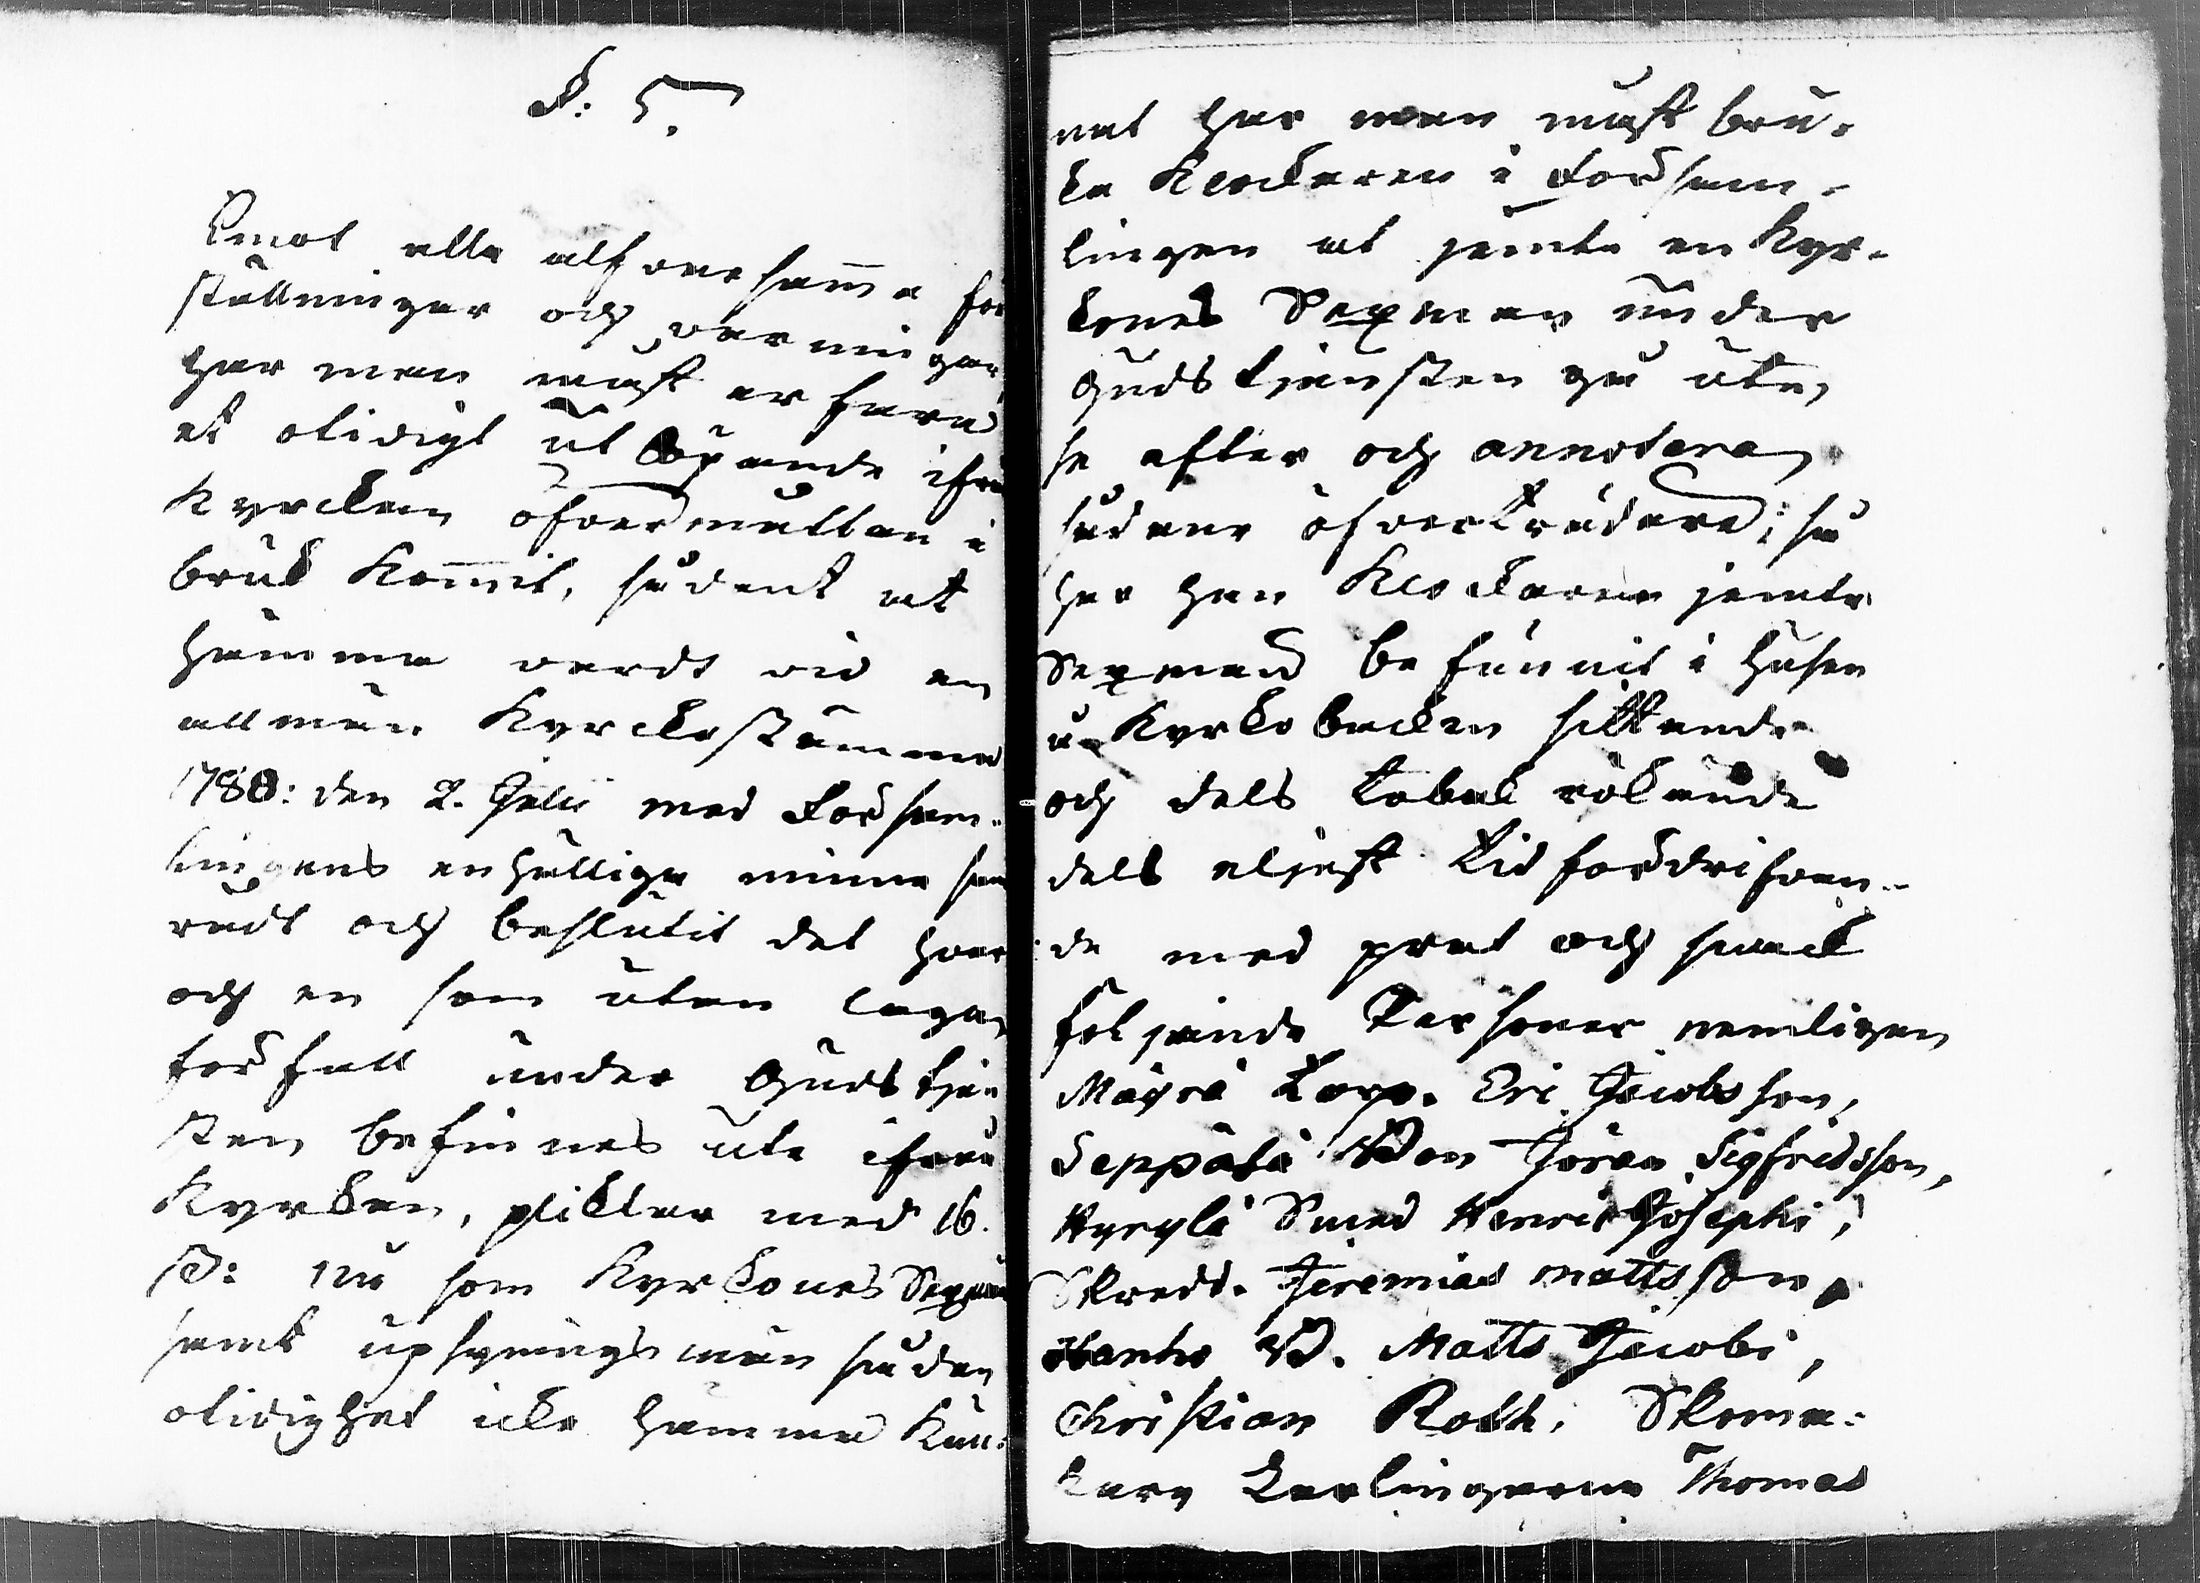 §: 5.
Emot alla alfvarsamma för
ställningar och varningar
har man måst erfara
et otidigt ut löpande ifrån
Kyrckan öfvermåttan i
bruk Kommit, sådant at
hämma vardt vid en
allmän Kyrckostämma
1780: den 2. Julii med Församl
lingens enhälliga minne sam
rådt och beslutit det hvar
och en som utan laga
förfall under Gudstjen
sten befinnes ute ifrån
Kyrkan, plicktar med 16.
ß: nu som Kyrkones Sexmän
samt upsyningsmän sådan
otidighet icke hämma Kun:
nat har man måst bru-
ka Klockaren i Försam-
lingen at jemte en Kyr-
kones Sexman under
Gudstjensten gå ute,
se efter och annotera
sådane öfverträdare; så
har han Klockaren jemte
Sexman befunnit i husen
å Kyrkobacken sittande
och dels Tobak rökande
dels eljest tid fördrifvan-
de med prat och snack
följande Personer nemligen
Mäyrä Torp. Eric Jacobsson,
Seppälä Bon Jöran Sigfridsson,
Hyrylä Smed Henric Josephi,
Skredd. Jeremias Mattsson,
Hanho B. Matts Jacobi,
Christian Roth, Skoma-
kare Lärlingarne Thomas